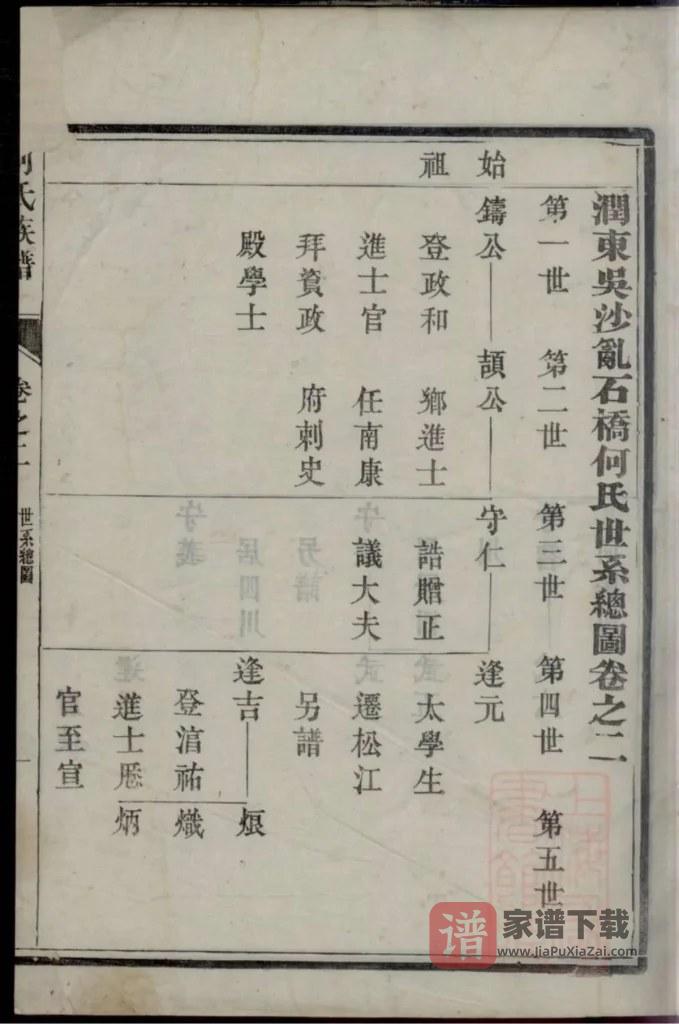 潤東吳沙亂石橋何氏世系總圖卷之二
第一世 第二世 第三世 第四世 第五世
始 鑄公 頡公 守仁 逢元
祖 登政和 鄉進士 誥贈正 太學生
進士官 任南康 議大夫 遷松江
拜資政 府刺史 另譜
殿學士 逢吉 烺
登湻祐 熾
進士歷 炳
官至宣
氏族譜 卷之二 世系總圖
谱 家谱下载
www.JiaPuXiaZai.com